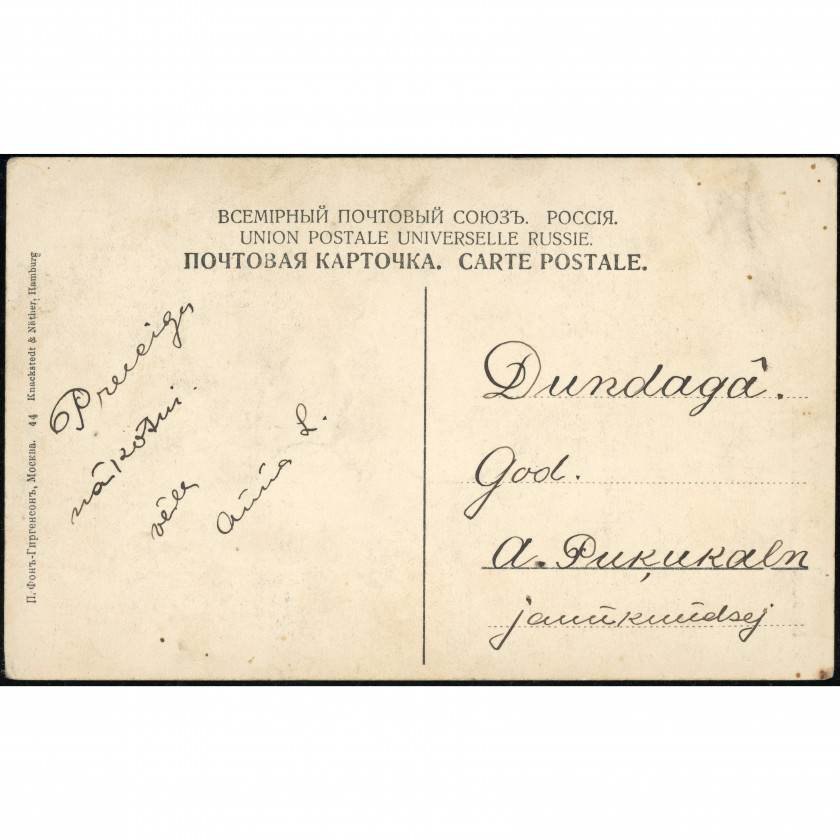 ВСЕМІРНЫЙ ПОЧТОВЫЙ СОЮЗЪ. РОССІЯ.
UNION POSTALE UNIVERSELLE RUSSIE.
ПОЧТОВАЯ КАРТОЧКА. CARTE POSTALE.
П. Фонъ-Гиргенсонъ, Москва. 44 Knackstedt & Näther, Hamburg
Preeciga
nâkotni.
vēle
Anna L.
Dundagâ.
God.
A. Puķukaln
jaunkundsej